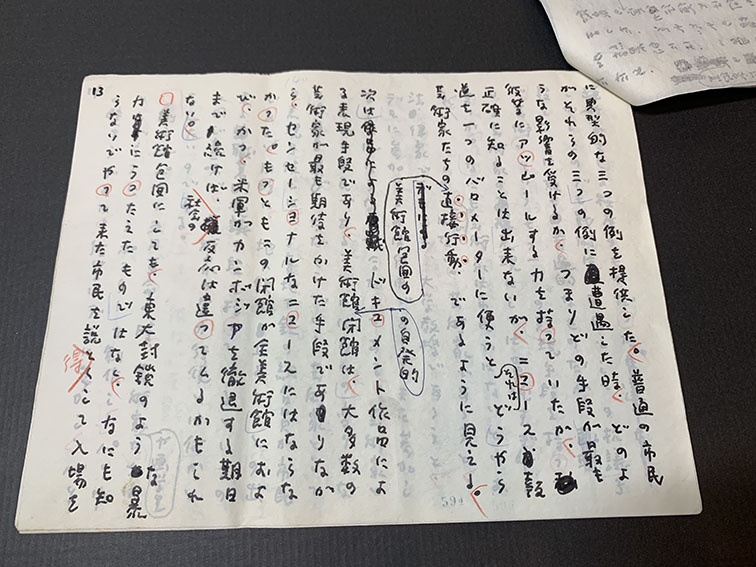 に典型的な三つの例を提供した。普通の市民
がそれらの三つの例に遭遇した時、どのよ
うな影響を受けるか、つまりどの手段が最も
彼等にアッピールする力を持っていたか、
正確に知ることは出来ないが、ニュース
道を一つのバロメーターに使うと、それはどうやら
芸術家たちの直接行動、であるように見える。
美術館包囲の
の自発的
次は ドキュメント作品によ
る表現手段であり、美術館閉館は、大多数の
芸術家が最も期待をかけた手段でありなが
ら、センセーショナルなニュースにはならな
かった。もっともこの閉館が全美術館におよ
び、かつ、米軍がカンボジアを撤退する期日
まで続けば、社会の反応は違ってくるかもしれ
ない。
美術館包囲にしても、東大封鎖のような暴
力にうったえたものではなく、なにも知
らないでやって来た市民を説得して入場を
13
594